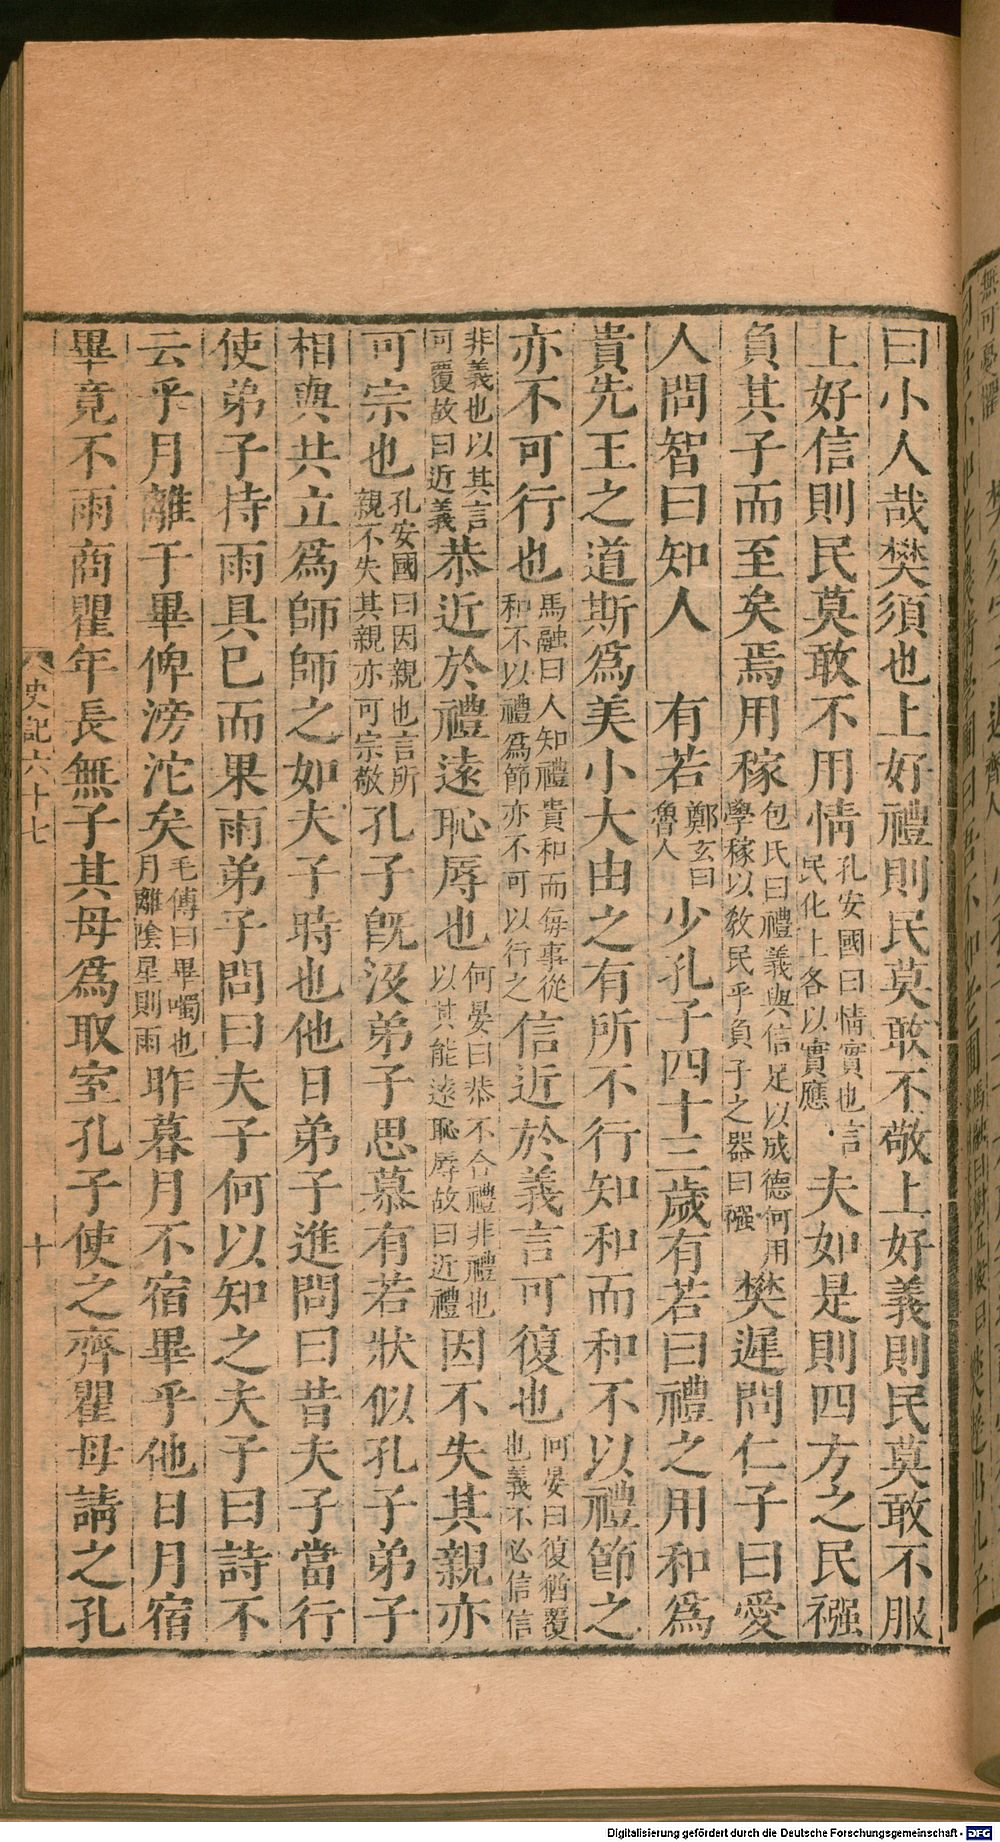 曰小人哉樊須也上好禮則民莫敢不敬上好義則民莫敢不服
上好信則民莫敢不用情孔安國曰情實也言民化上各以實應夫如是則四方之民襁
負其子而至矣焉用稼包氏曰禮義與信足以成德何用學稼以敎民乎負子之器曰襁樊遲問仁子曰愛
人問智曰知人 有若鄭玄曰魯人少孔子四十三歲有若曰禮之用和爲
貴先王之道斯爲美小大由之有所不行知和而和不以禮節之
亦不可行也馬融曰人知禮貴和而每事從和不以禮爲節亦不可以行之信近於義言可復也何晏曰復猶覆也義不必信信
非義也以其言可覆故曰近義恭近於禮遠恥辱也何晏曰恭不合禮非禮也以其能遠恥辱故曰近禮因不失其親亦
可宗也孔安國曰因親也言所親不失其親亦可宗敬孔子旣沒弟子思慕有若狀似孔子弟子
相與共立爲師師之如夫子時也他日弟子進問曰昔夫子當行
使弟子持雨具已而果雨弟子問曰夫子何以知之夫子曰詩不
云乎月離于畢俾滂沱矣毛傳曰畢噣也月離陰星則雨昨暮月不宿畢乎他日月宿
畢竟不雨商瞿年長無子其母爲取室孔子使之齊瞿母請之孔
史記六十七 十
Digitalisierung gefördert durch die Deutsche Forschungsgemeinschaft - DFG